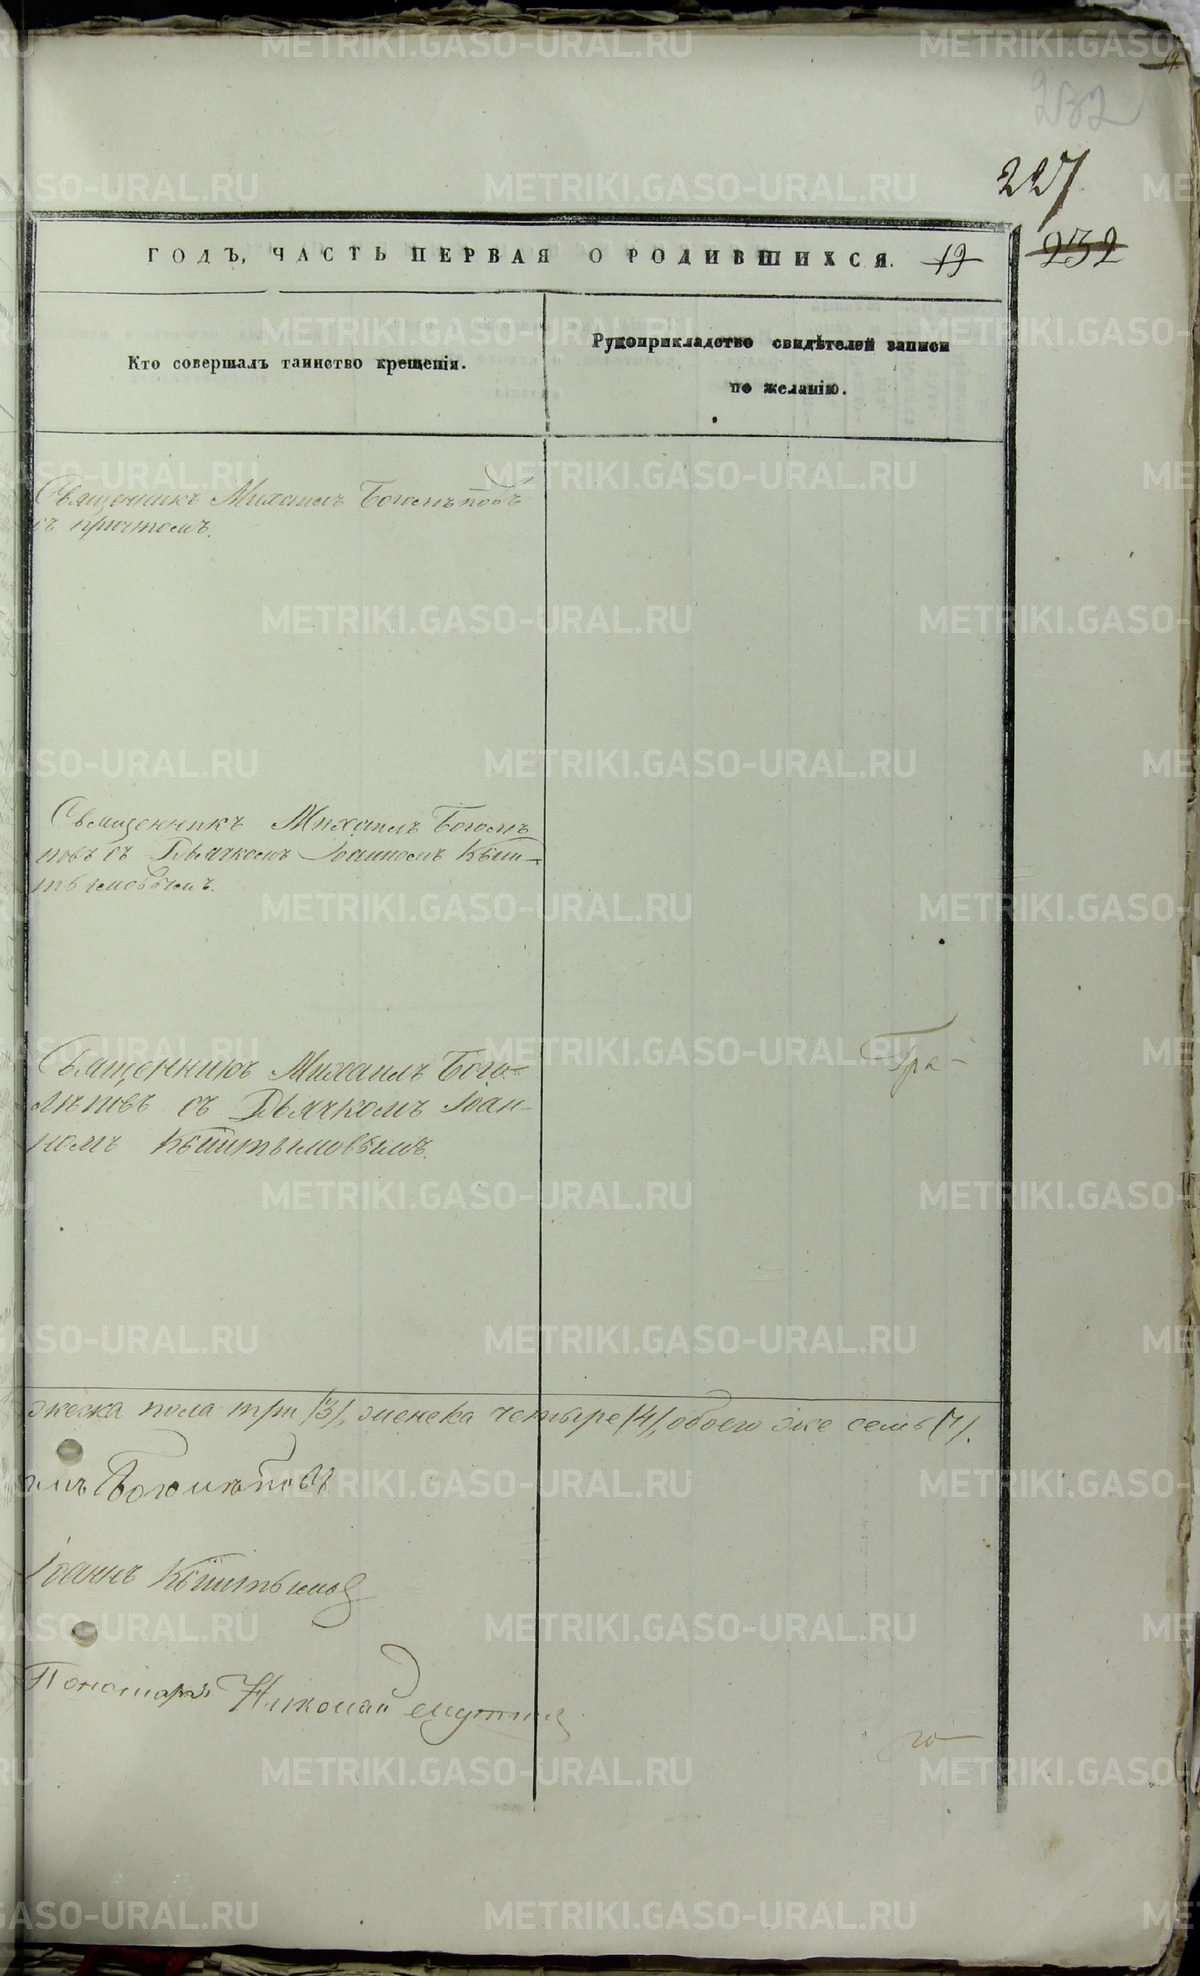 232
227
ГОДЪ, ЧАСТЬ ПЕРВАЯ О РОДИВШИХСЯ. 19 232
Кто совершалъ таинство крещенія.
Рукоприкладство свидѣтелей записи
по желанію.
Священникъ Михаилъ Боголѣповъ
съ причтомъ.
Священникъ Михаилъ Боголѣ
повъ съ Дьячкомъ Іоанномъ Кыш-
тымовымъ.
Священникъ Михаилъ Бого-
лѣповъ съ Дьячкомъ Іоан-
номъ Кыштымовымъ.
Гра-
жеска пола три (3), женска четыре (4), обоего же семь (7).
илъ Боголѣповъ
Іоаннъ Кыштымов
Пономарь Николай
го
METRIKI.GASO-URAL.RU